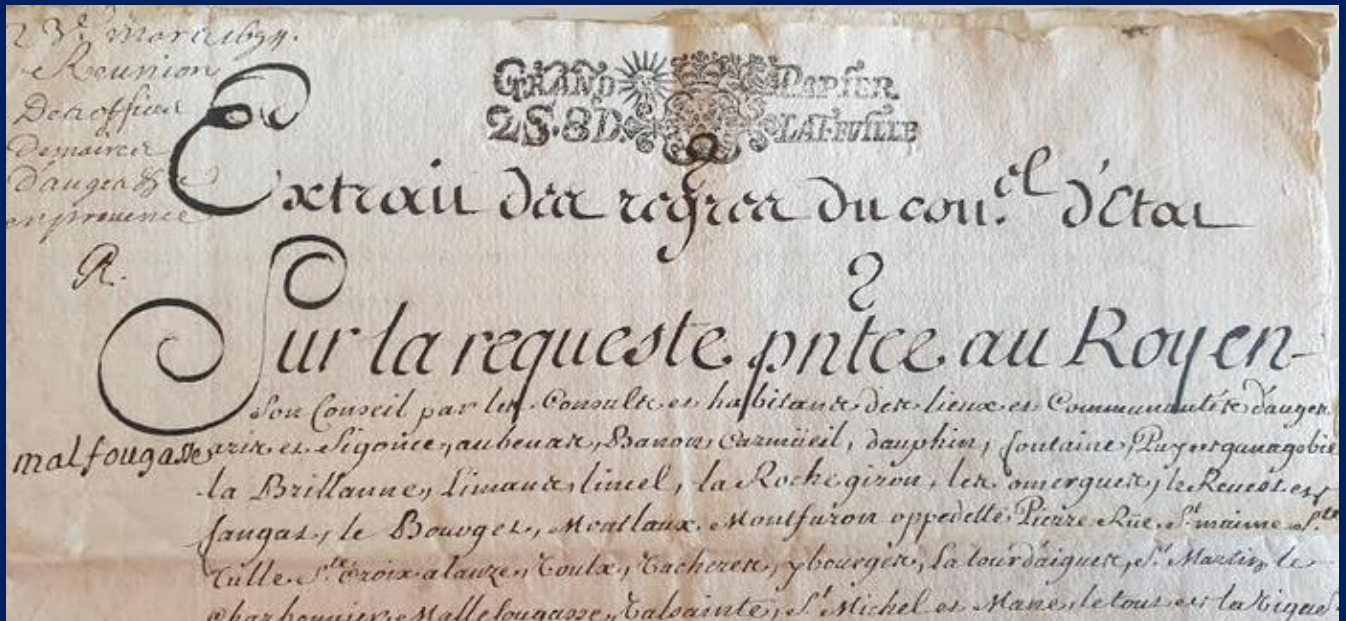 23e. mars 1694.
Reunion
Des offices
De maires
d'auges &c
en provence
R.
GRAND PAPIER
2S.8D. LA FEUILLE
Extrait des regres du con.el d'Etat
Sur la requeste pntée au Roy en
son Conseil par les Consuls et habitans des lieux et Communautés d'auges
malfougasse
aris et Sigonce, aubenas, Banon, Carmüeil, dauphin, fontaine,
la Brillanne, Limans, lincel, la Rochegiron, les omergues, le Revest et
fangas, le Bourget, Montlaux, Montfuron oppedette Pierre Rüe. St. maime Ste
Tulle. Ste. Croix alauze, Toulx, Vacheres, ybourgues, La tour d'aigues, St. Martin, le
Charbonnier, Mallefougasse, Valsainte, St. Michel et Mane, le tout et la Vigue